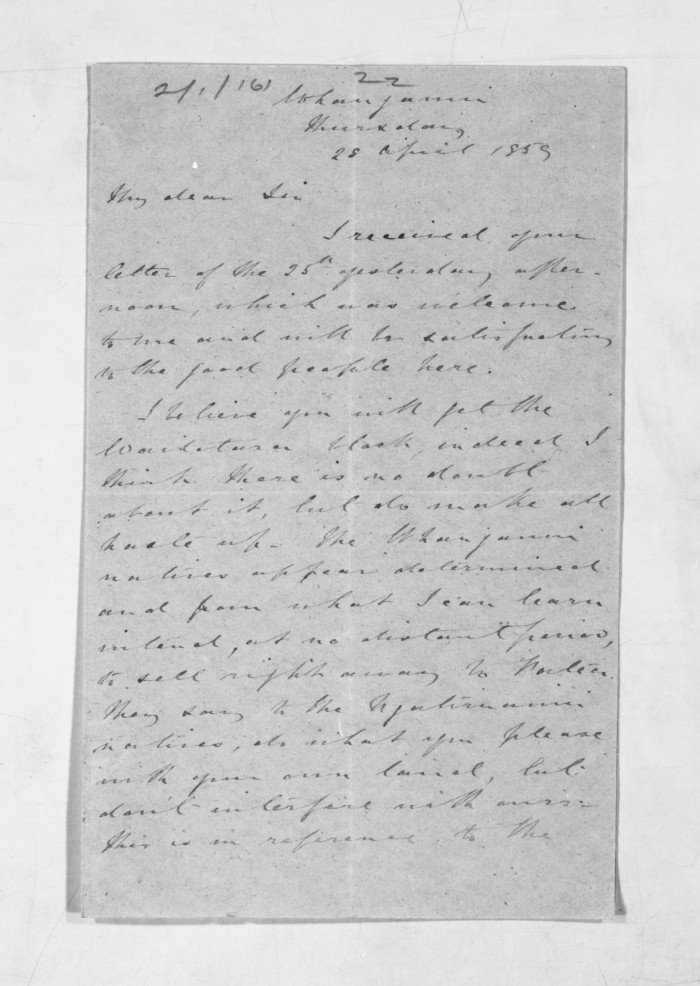 2/1/161 22
Whanganui
Thursday
28 April 1859
My dear Sir
I received your
letter of the 25th yesterday after-
noon, which was welcome
to me and will be satisfactory
to the good people here.
I believe you will get the
Waitotara block, indeed I
think there is no doubt
about it, but do make all
haste up - The Whanganui
natives appear determined
and from what I can learn
intend, at no distant period,
to sell right away to Patea.
They say to the Ngatiruanui
natives, do what you please
with your own land, but
don't interfere with ours -
This is in reference to the